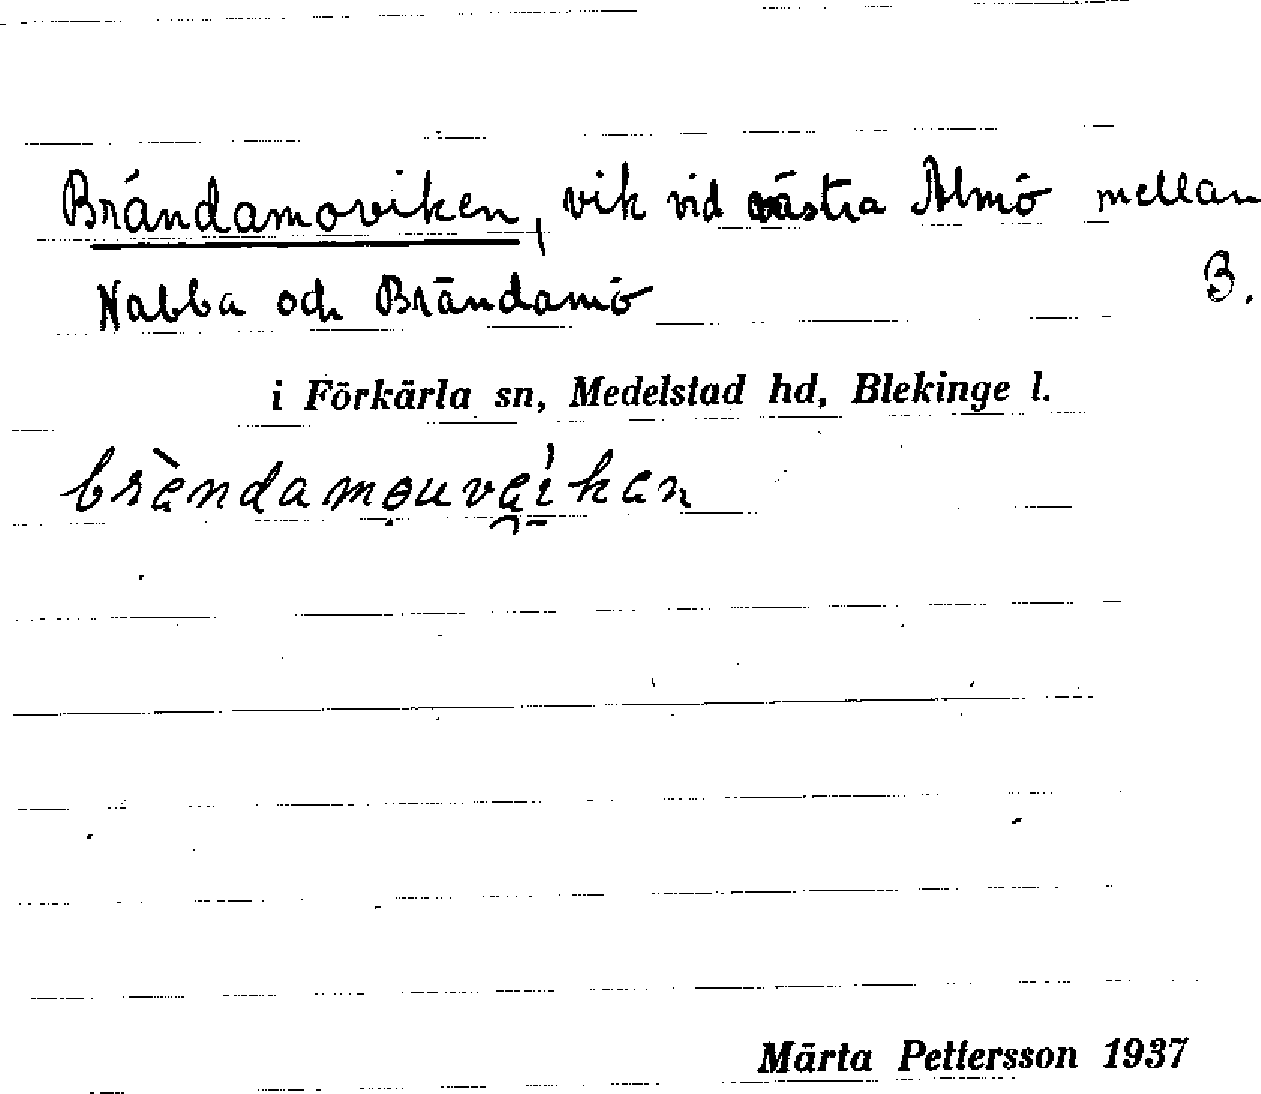 Brändamoviken, vik vid västra Almö mellan
Nabba och Brändamö
B.
i Förkärla sn, Medelstad hd, Blekinge l.
brὲndamouvεikεn
Märta Pettersson 1937